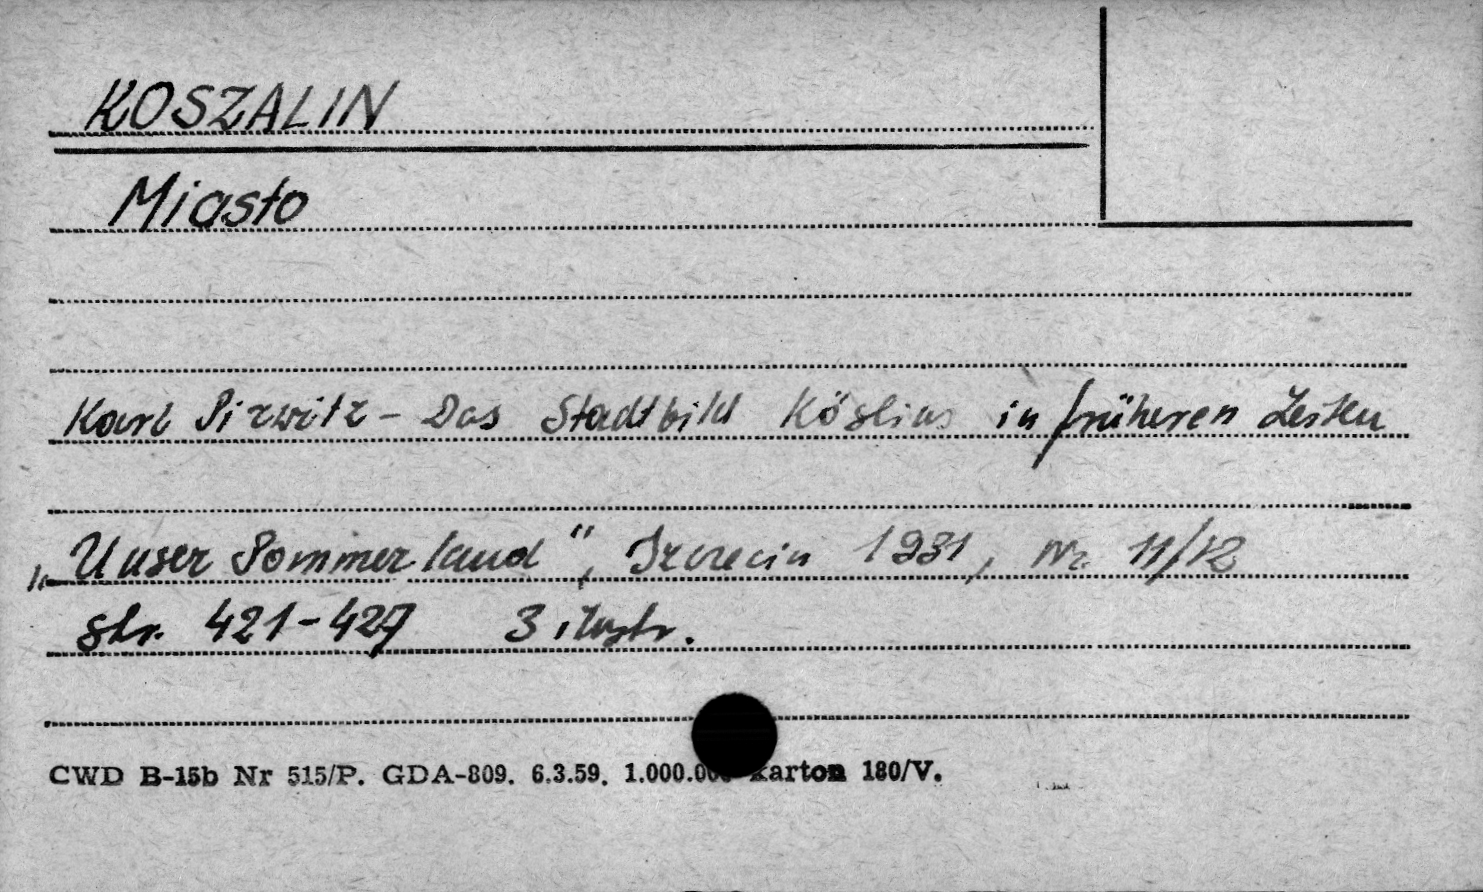 KOSZALIN
Miasto
Karl Pirwitz - Das Stadtbild Köslins in früheren Zeiten
„Unser Pommerland", Szczecin 1931, Nr. 11/12
str. 421-427 3 ilustr.
CWD B-15b Nr 515/P. GDA-809. 6.3.59. 1.000.000 karton 180/V.